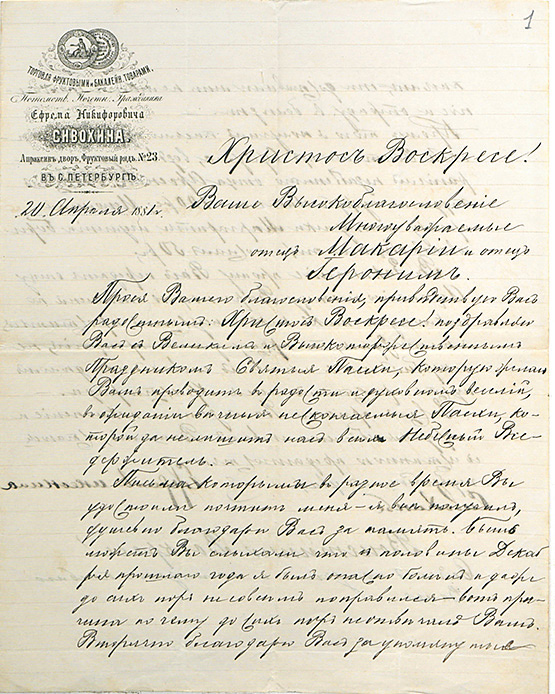 1
ТОРГОВЛЯ ФРУКТОВЫМИ и БАКАЛЕЙН. ТОВАРАМИ,
Потомств. Почетн. Гражданина
Ефрема Никифоровича
СИВОХИНА.
Апраксин двор, Фруктовый рядъ, №23
ВЪ С. ПЕТЕРБУРГѢ.
Христосъ Воскресе!
20. Апреля 1881 г.
Ваше Высокоблагословенiе
Многоуважаемые
отецъ Макарiи и отецъ
Iеронимъ.
Прося Вашего благословенiя, приветствую Васъ
радостнымъ: Христосъ Воскресе! поздравляю
Васъ съ Великимъ и Высокоторжественнымъ
Праздникомъ Святыя Пасхи, которую желаю
Вамъ проводить в радости и духовномъ веселiй,
в ожиданiи вечныя нескончаемыя Пасхи, ко-
торой да не лишитъ насъ всехъ Небесный Все-
держитель.
Письма которымъ в разное время Вы
удостоили почтить меня – я все получилъ,
душевно благодарю Васъ за память. Быть
можетъ Вы слыхали что в половине Декаб
ря прошлаго года я былъ опасно боленъ и даже
до сихъ поръ не совсемъ поправился – вотъ при-
чина по чему до сихъ поръ не отвечалъ Вамъ.
Вторично благодарю Васъ за